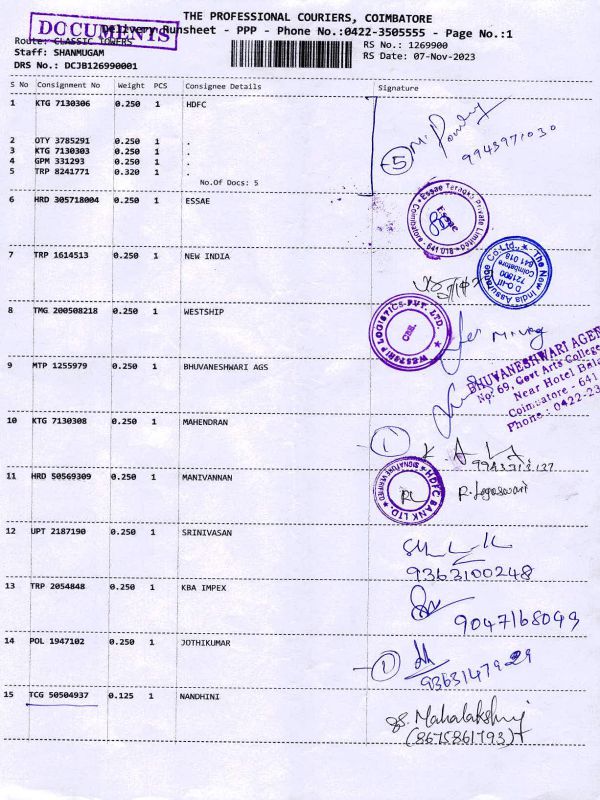 THE PROFESSIONAL COURIERS, COIMBATORE
DOCUMENTS
Delivery Runsheet - PPP - Phone No.:0422-3505555 - Page No.:1
Route: CLASSIC TOWERS
RS No.: 1269900
Staff: SHANMUGAM
RS Date: 07-Nov-2023
DRS No.: DCJB126990001
S No Consignment No Weight PCS Consignee Details Signature
1 KTG 7130306 0.250 1 HDFC
2 OTY 3785291 0.250 1 .
3 KTG 7130303 0.250 1 .
4 GPM 331293 0.250 1 .
5 TRP 8241771 0.320 1 .
No.Of Docs: 5
5
9943971030
6 HRD 305718004 0.250 1 ESSAE
Essae Teraoka Private Limited
Coimbatore - 641 018
Essae
7 TRP 1614513 0.250 1 NEW INDIA
The New India Assurance Co.Ltd.,
D.O.-III
721600
Coimbatore
641 018
8 TMG 200508218 0.250 1 WESTSHIP
WESTSHIP LOGISTICS PVT. LTD.
CBE.
9 MTP 1255979 0.250 1 BHUVANESHWARI AGS
BHUVANESHWARI AGEN
No: 69, Govt Arts College
Near Hotel Bala
Coimbatore - 641
Phone: 0422-23
10 KTG 7130308 0.250 1 MAHENDRAN
1
11 HRD 50569309 0.250 1 MANIVANNAN
HDFC BANK LTD.
SIGNATURE VERIFIED
R. Logaswari
12 UPT 2187190 0.250 1 SRINIVASAN
9363100248
13 TRP 2054848 0.250 1 KBA IMPEX
9047168099
14 POL 1947102 0.250 1 JOTHIKUMAR
1
9363147929
15 TCG 50504937 0.125 1 NANDHINI
Mahalakshmi
(8675861793)